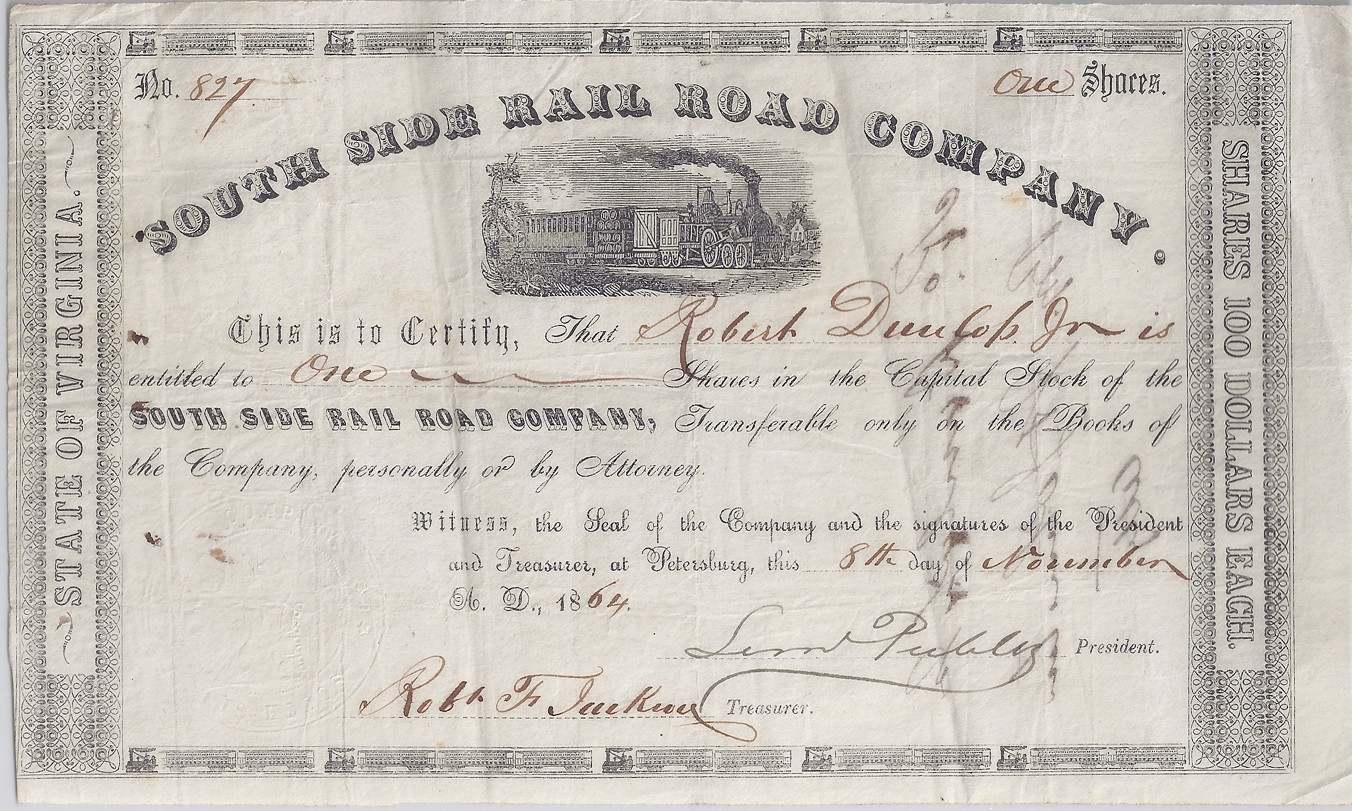 No. 827
One Shares.
SOUTH SIDE RAIL ROAD COMPANY.
This is to Certify, That Robert Dunlop. Jr is
entitled to One Shares in the Capital Stock of the
SOUTH SIDE RAIL ROAD COMPANY, Transferable only on the Books of
the Company, personally or by Attorney.
Witness, the Seal of the Company and the signatures of the President
and Treasurer, at Petersburg, this 8th day of November
A. D., 1864.
President.
Robt F Jackson Treasurer.
STATE OF VIRGINIA.
SHARES 100 DOLLARS EACH.